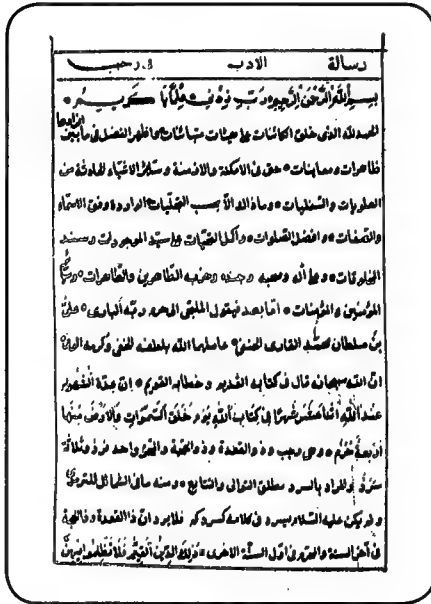 رسالة الادب فى رجب
بسم الله الرحمن الرحيم رب زدنى علما يا كريم
الحمد لله الذى خلق الكائنات على هيئات متباينات واظهر الفضل فى ما بين
ظاهرات ومعاينات حتى فى الامكنة والازمنة وسائر الاشياء الحادثة من
العلويات والسفليات وما ذاك الا بسبب التجليات الواردة وفق الاسماء
والصفات وافضل الصلوات واكمل التحيات على سيد الموجودات وسند
المخلوقات وعلى آله وصحبه وجنده وحزبه الطاهرين والطاهرات
المؤمنين والمؤمنات اما بعد فيقول الملتجى الى حرم ربه البارى على
بن سلطان محمد القارى الحنفى عاملهما الله بلطفه الخفى وكرمه الوفى
ان الله سبحانه قال فى كتابه القديم وخطابه القويم ان عدة الشهور
عند الله اثنا عشر شهرا فى كتاب الله يوم خلق السموات والارض منها
اربعة حرم وهى رجب وذو القعدة وذو الحجة والمحرم واحد فرد وثلاثة
سرد والمراد بالسرد مطلق التوالى والتتابع ومنه ما فى الشمائل للترمذى
ولم يكن عليه السلام يسرد فى كلامه كسردكم فلا يرد ان ذا القعدة وذا الحجة
فى آخر السنة والمحرم فى اول السنة الاخرى ذلك الدين القيم فلا تظلموا فيهن